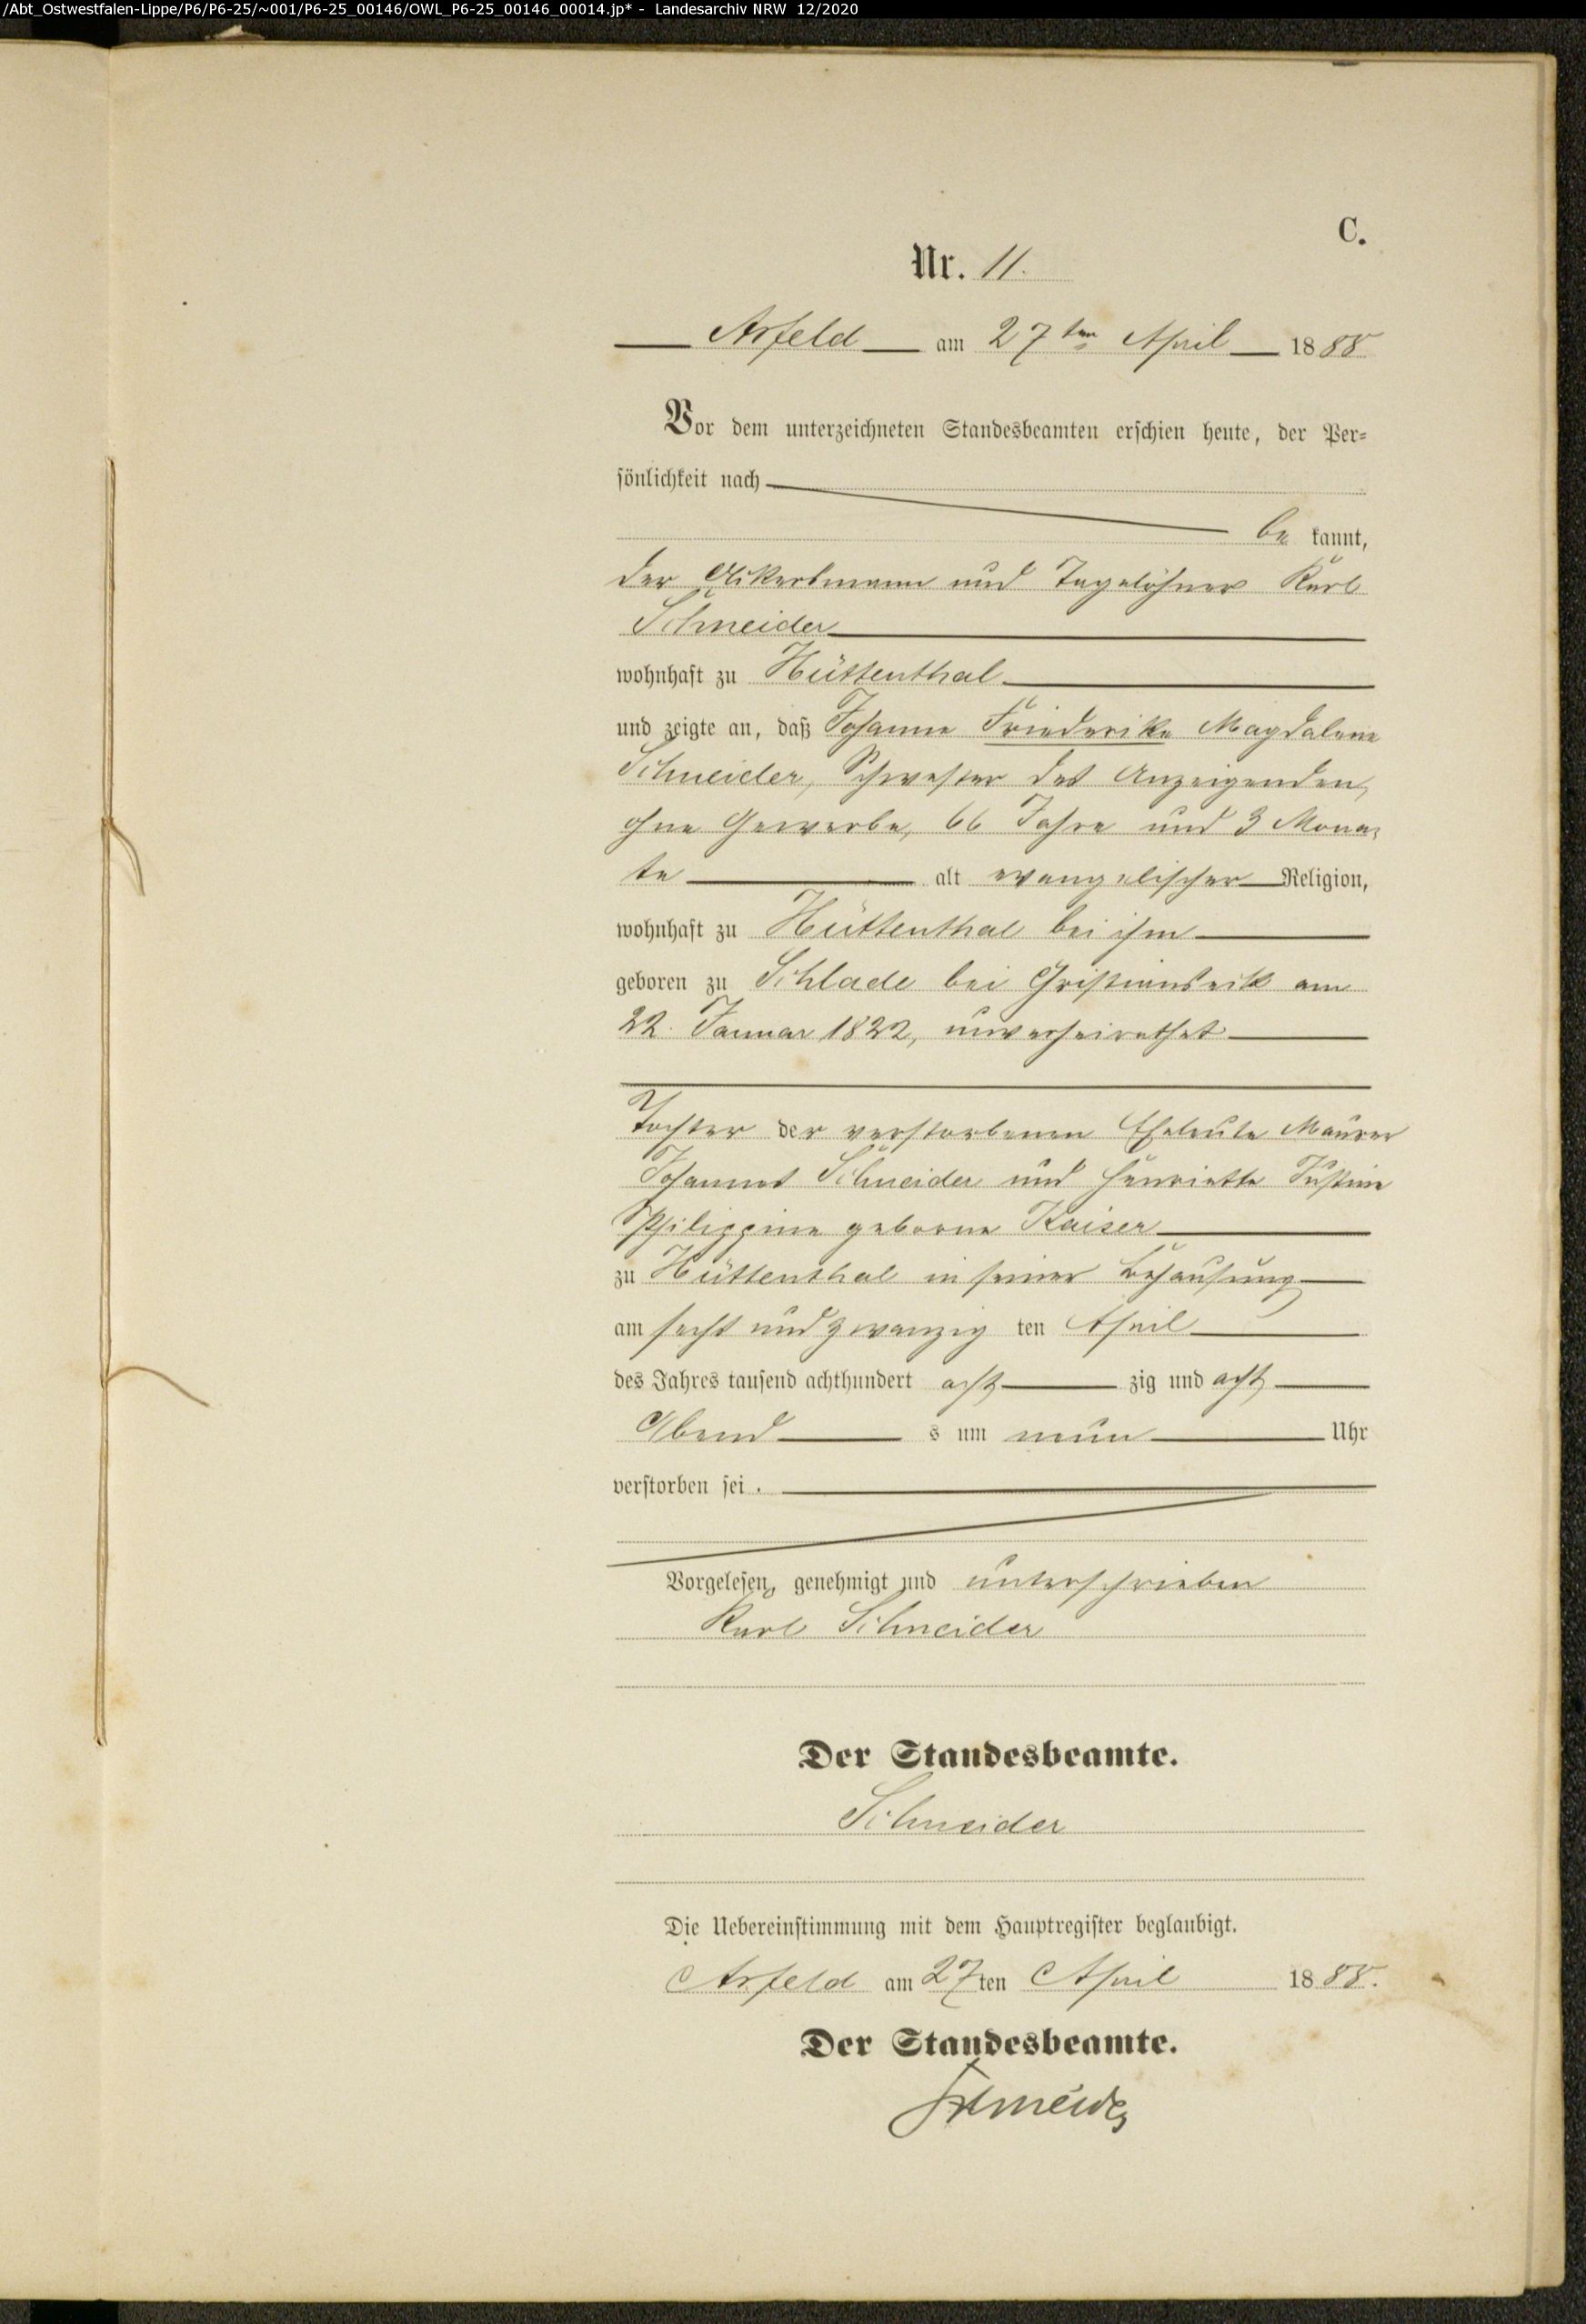 /Abt_Ostwestfalen-Lippe/P6/P6-25/~001/P6-25_00146/OWL_P6-25_00146_00014.jp* - Landesarchiv NRW 12/2020
C.
Nr. 11.
Arfeld am 27ten April 1888
Vor dem unterzeichneten Standesbeamten erschien heute, der Per-
sönlichkeit nach
be kannt,
der Ackersmann und Tagelöhner Karl
Schneider
wohnhaft zu Hüttenthal
und zeigte an, daß Johanne Friederike Magdalene
Schneider, Schwester des Anzeigenden,
ohne Gewerbe, 66 Jahre und 3 Mona-
te alt evangelischer Religion,
wohnhaft zu Hüttenthal bei ihm
geboren zu Schlade bei Christianseck am
22. Januar 1822, unverheirathet
Tochter der verstorbenen Eheleute Maurer
Johannes Schneider und Henriette Justine
Philippine geborne Kaiser
zu Hüttenthal in seiner Behausung
am sechs und zwanzig ten April
des Jahres tausend achthundert acht zig und acht
Abend s um neun Uhr
verstorben sei.
Vorgelesen, genehmigt und unterschrieben
Karl Schneider
Der Standesbeamte.
Schneider
Die Uebereinstimmung mit dem Hauptregister beglaubigt.
Arfeld am 27ten April 1888.
Der Standesbeamte.
Schneider